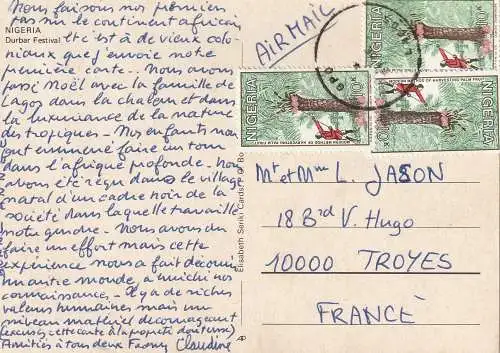 Nous faisons nos premiers
pas sur le continent africain
NIGERIA
Durbar Festival
et c'est à de vieux colo-
niaux que j'envoie notre
première carte.. Nous avons
passé Noël avec la famille de
Lagos dans la chaleur et dans
la luxuriance de la nature
des tropiques - Nos enfants nous
ont emmené faire un tour
dans l'afrique profonde. Nous
avons été reçu dans le village
natal d'un cadre noir de la
société dans laquelle travaille
notre gendre. Nous avons du
faire un effort mais cette
expérience nous a fait découvrir
un autre monde, a enrichi nos
connaissances - Il y a de riches
valeurs humaines mais un
niveau matériel décourageant
(excusez cette carte à la propreté douteuse)
Amitiés à tous deux Fanny Claudine
AIR MAIL
GPO
NIGERIA
10K
NIGERIA
10K
MODERN METHOD OF HARVESTING PALM FRUIT
NIGERIA
10K
Elisabeth Seriki Cards
Mr et Mme L. JASON
18 Brd V. Hugo
10000 TROYES
FRANCE